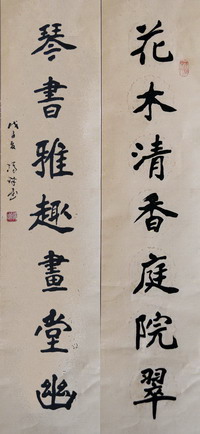 花木清香庭院翠
琴書雅趣畫堂幽
戊子夏